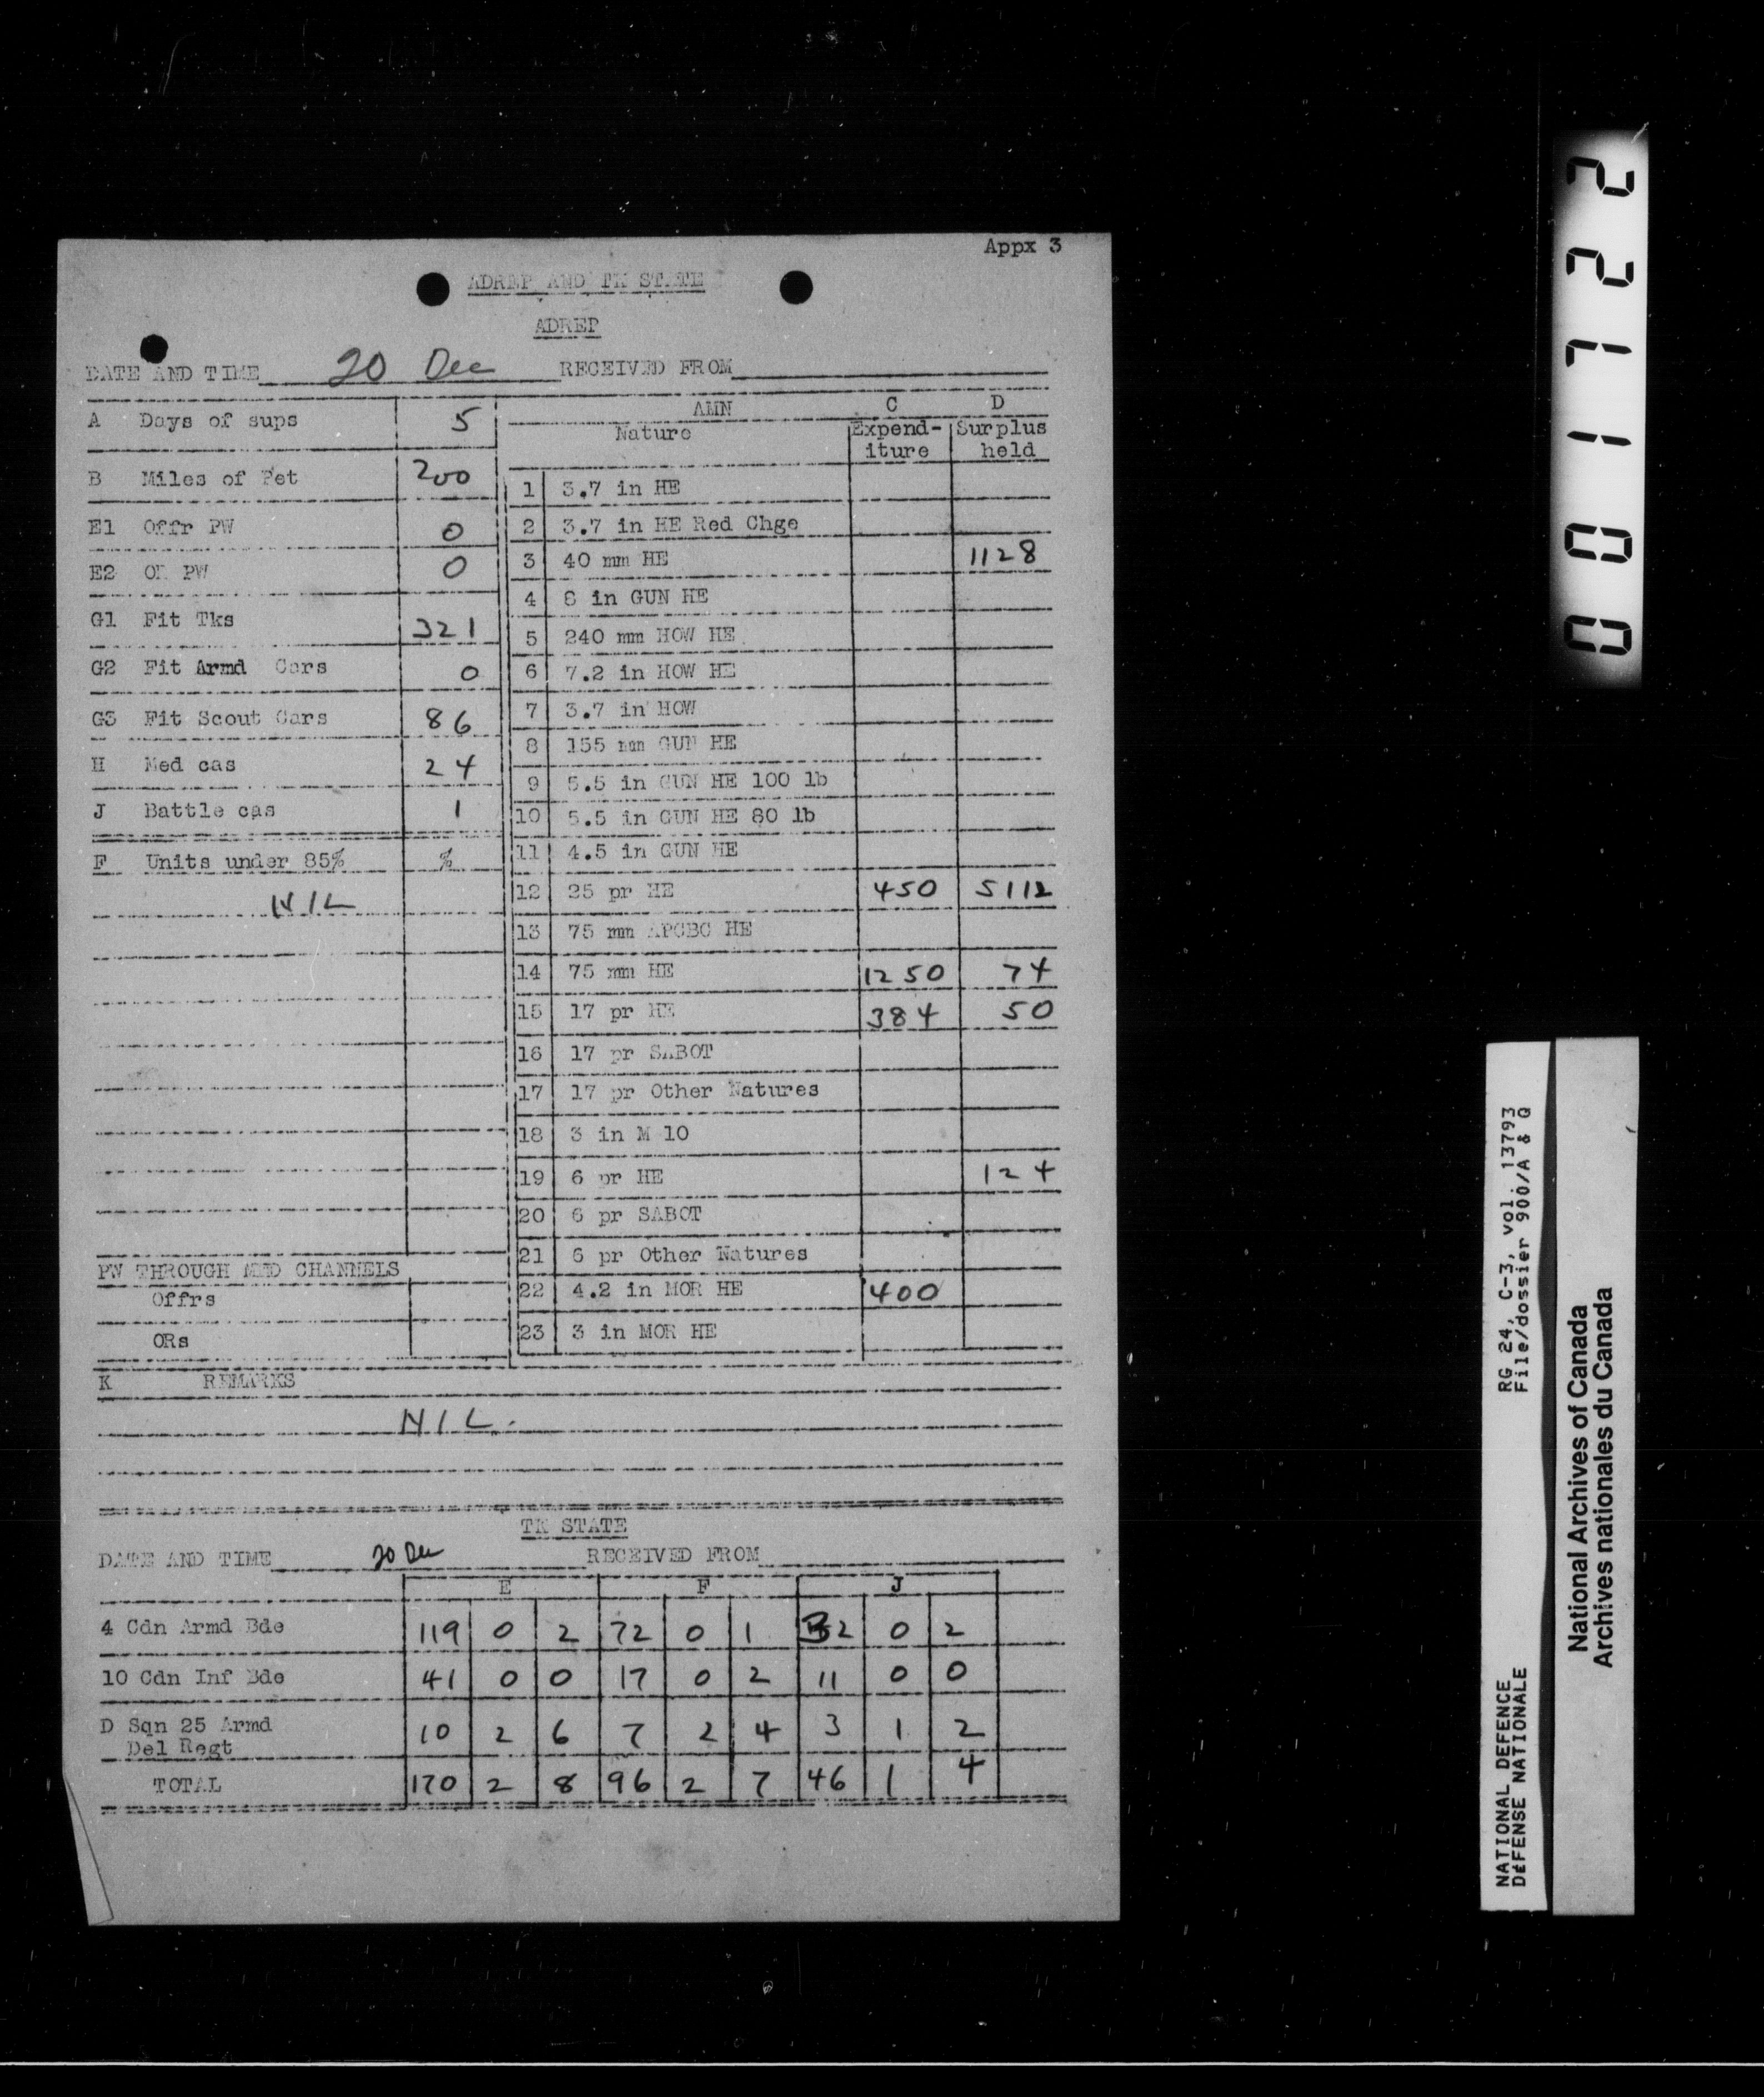 Appx 3
ADREP AND TK STATE
ADREP
DATE AND TIME 20 Dec RECEIVED FROM
A Days of sups 5
B Miles of Pet 200
E1 Offr PW 0
E2 OR PW 0
G1 Fit Tks 321
G2 Fit Armd Cars 0
G3 Fit Scout Cars 86
H Med cas 24
J Battle cas 1
F Units under 85% %
NIL
PW THROUGH MED CHANNELS
Offrs
ORs
AMN C D
Nature Expend-iture Surplus held
1 3.7 in HE
2 3.7 in HE Red Chge
3 40 mm HE 1128
4 8 in GUN HE
5 240 mm HOW HE
6 7.2 in HOW HE
7 3.7 in HOW
8 155 mm GUN HE
9 5.5 in GUN HE 100 lb
10 5.5 in GUN HE 80 lb
11 4.5 in GUN HE
12 25 pr HE 450 5112
13 75 mm APCBC HE
14 75 mm HE 1250 74
15 17 pr HE 384 50
16 17 pr SABOT
17 17 pr Other Natures
18 3 in M 10
19 6 pr HE 124
20 6 pr SABOT
21 6 pr Other Natures
22 4.2 in MOR HE 400
23 3 in MOR HE
K REMARKS
NIL.
TK STATE
DATE AND TIME 20 Dec RECEIVED FROM
E F J
4 Cdn Armd Bde 119 0 2 72 0 1 32 0 2
10 Cdn Inf Bde 41 0 0 17 0 2 11 0 0
D Sqn 25 Armd
Del Regt 10 2 6 7 2 4 3 1 2
TOTAL 170 2 8 96 2 7 46 1 4
001722
NATIONAL DEFENCE RG 24, C-3, vol. 13793
DÉFENSE NATIONALE File/dossier 900/A & Q
National Archives of Canada
Archives nationales du Canada